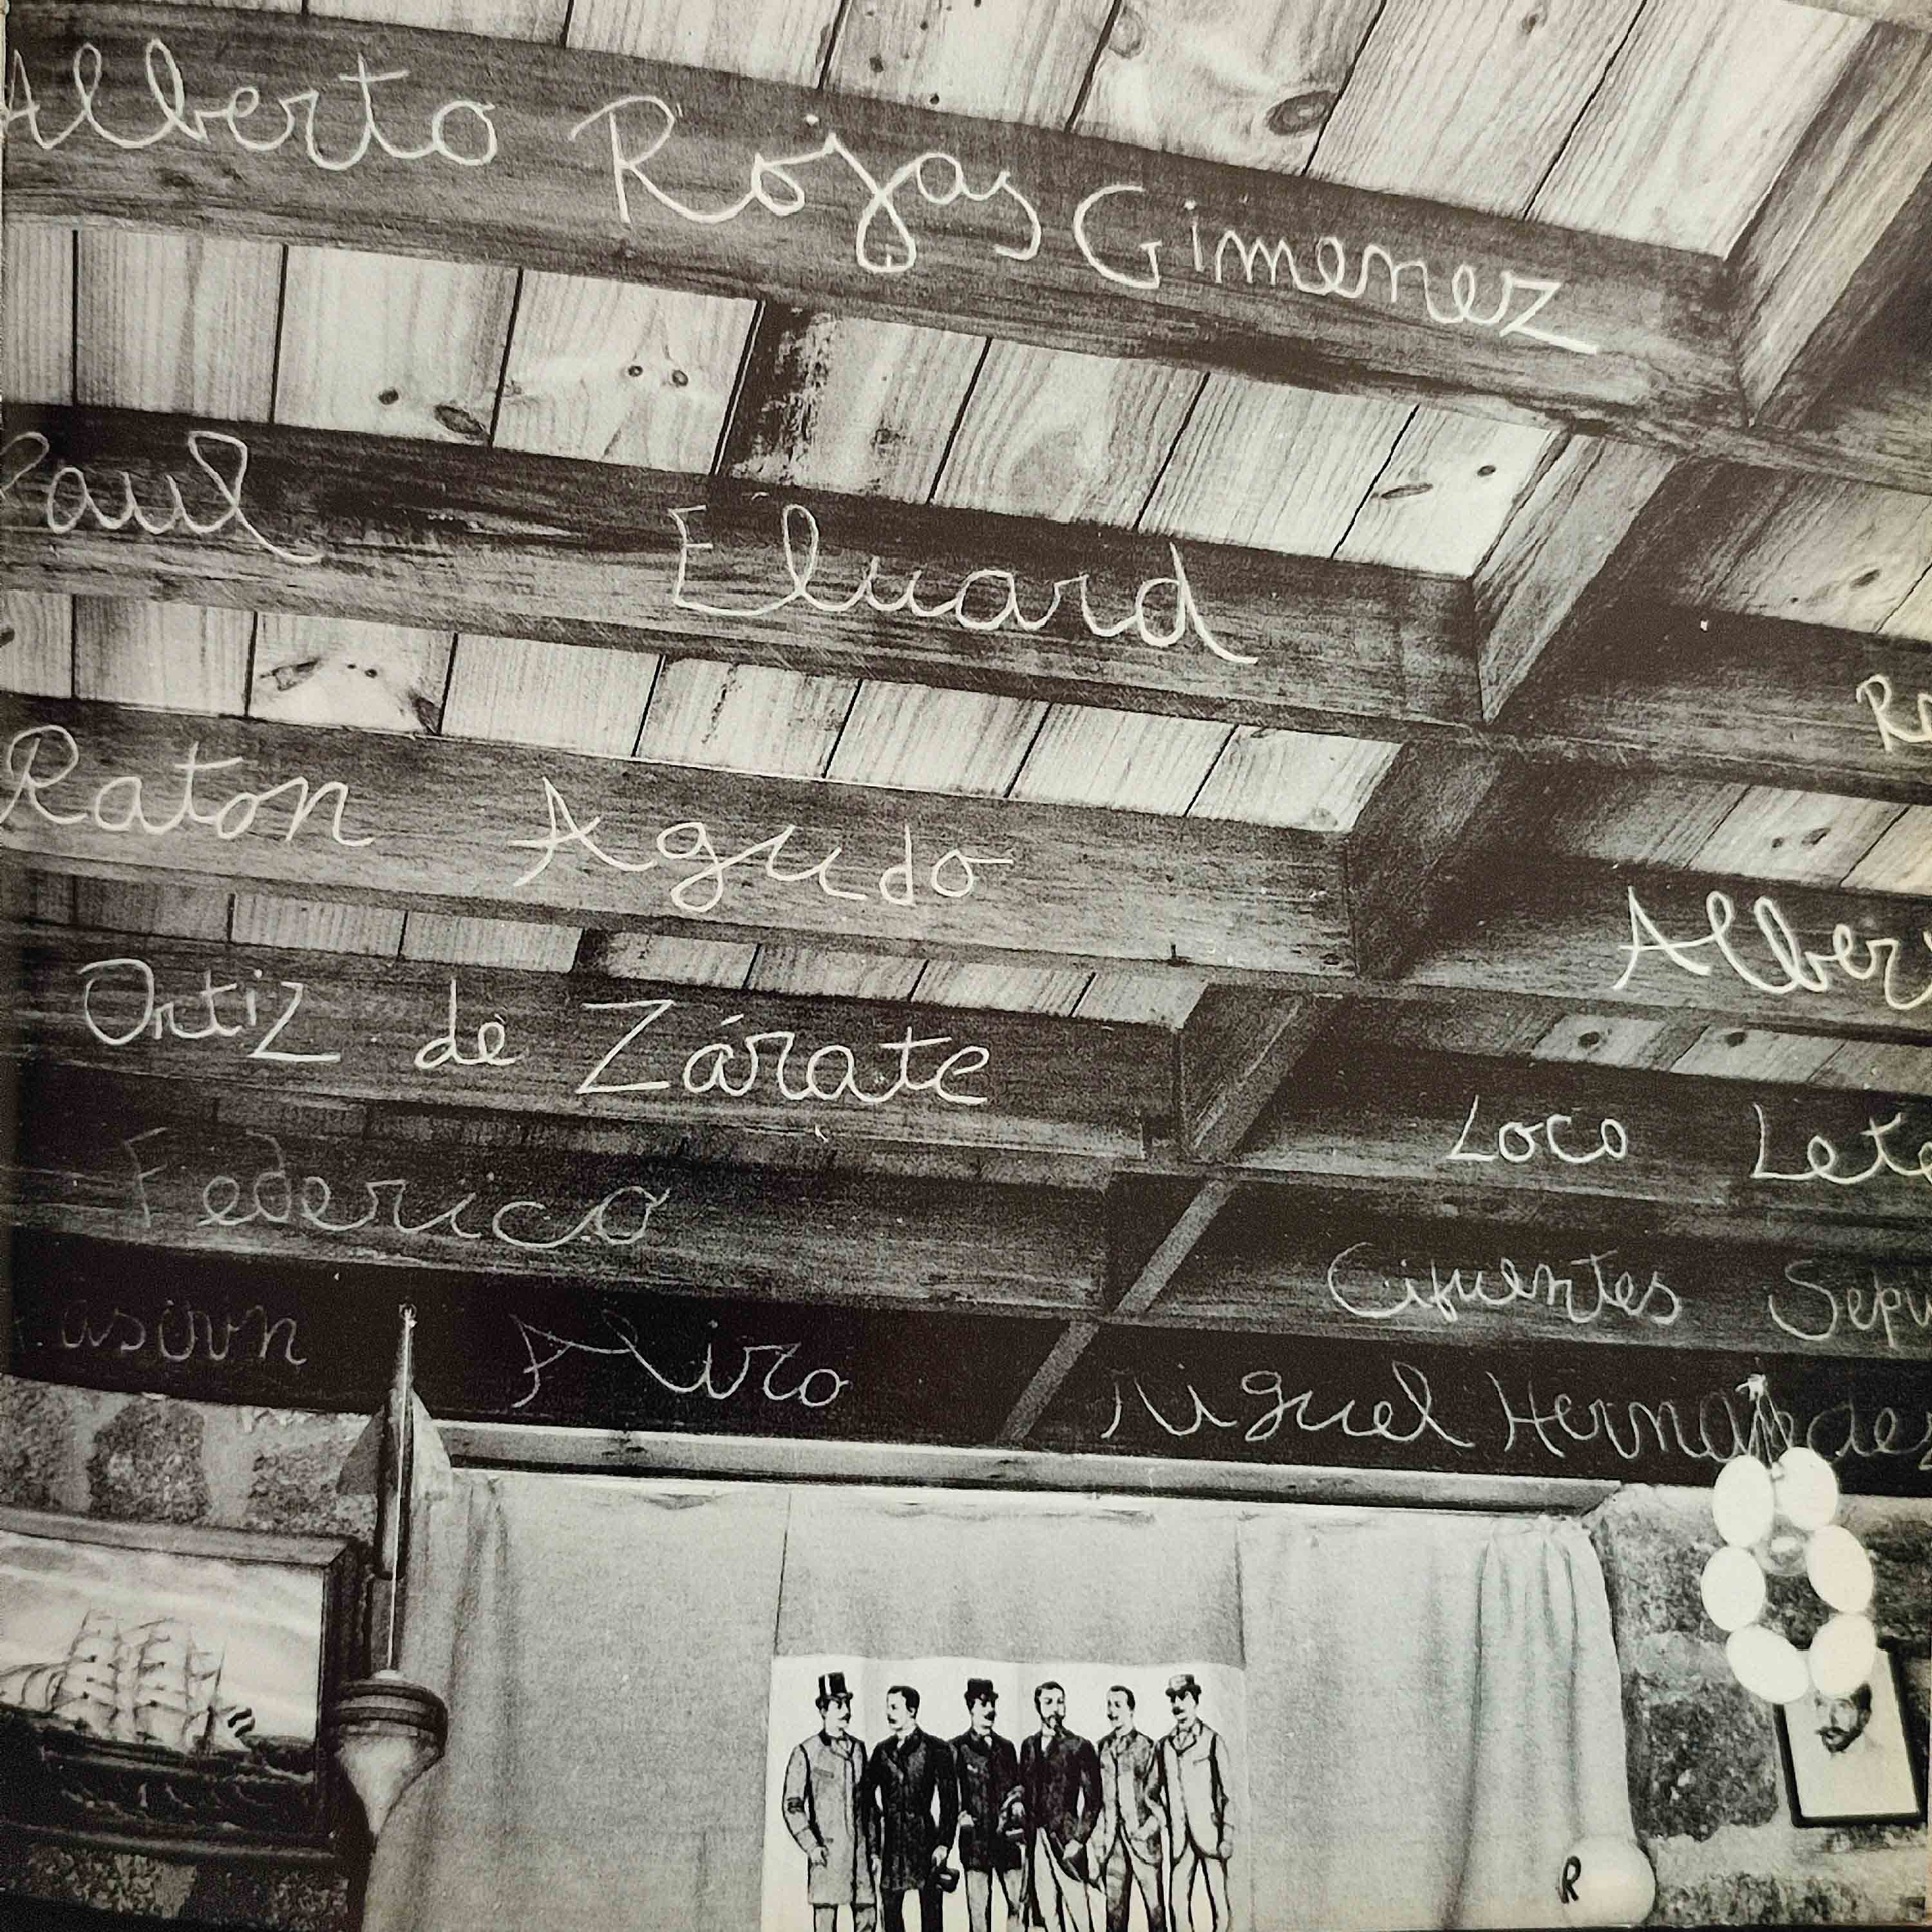 Alberto Rojas Gimenez
Paul Eluard
Raton Agudo
Alber
Ortiz de Zárate
Loco
Federico
Cifuentes
Aliro
Miguel Hernandez
R